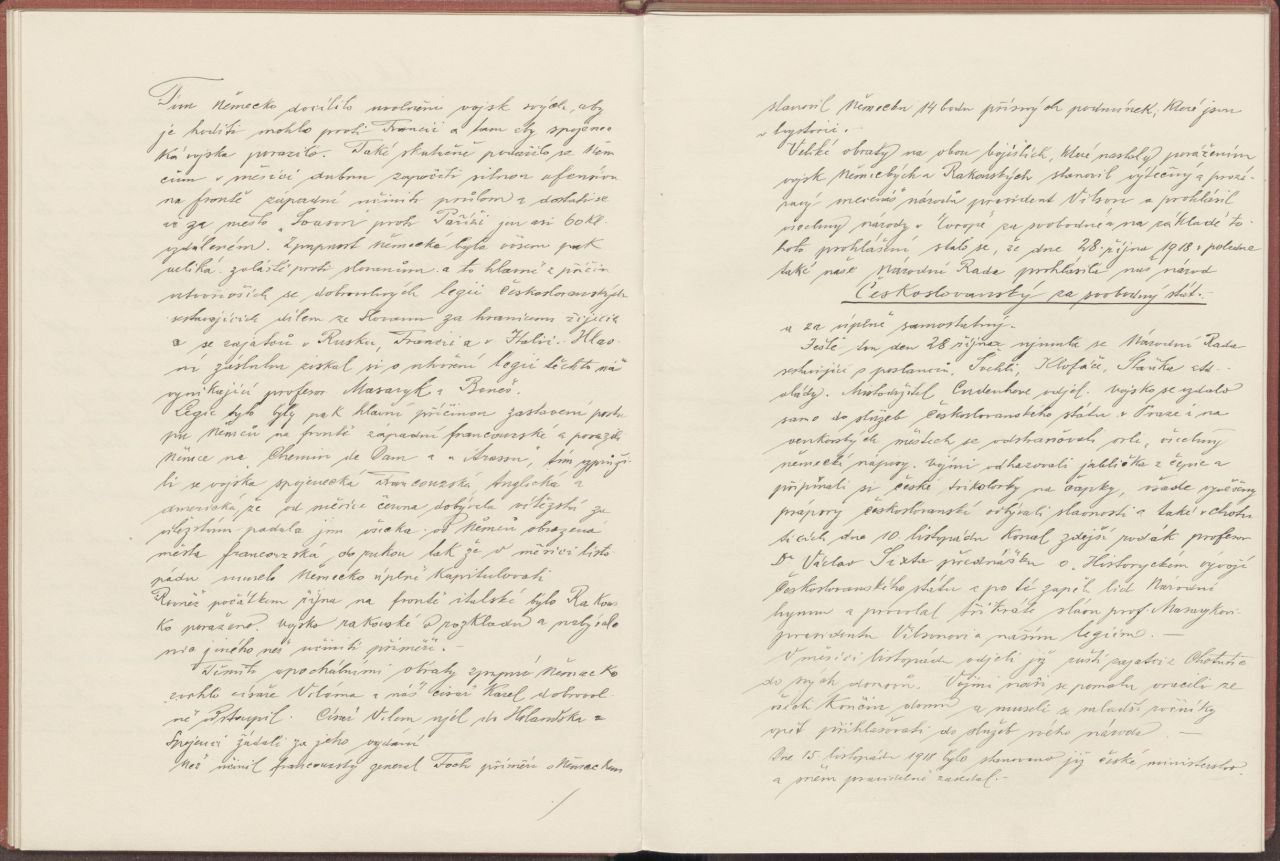 Tím Německo docílilo uvolnění vojsk svých, aby
je hoditi mohlo proti Francii a tam aby spojene-
ká vojska porazilo. Také skutečně podařilo se Něm
cům v měsíci dubnu započíti silnou ofensivu
na frontě západní učiniti průlom a dostati se
až za město „Soasoní proti Paříži jen asi 60 kl.
vzdáleném. Zpupnost Německá byla ovšem pak
veliká zvláště proti slovanům a to hlavně z příčin
utvořivších se dobrovolných legií Československých
sestávajících dílem ze Slovanů za hranicemi žijících
a se zajatců v Rusku, Francii a v Italii. Hlav-
ní zásluhu získal si o utvoření legií těchto náš
vynikající profesor Masaryk a Beneš.
Legie tyto byly pak hlavní příčinou zastavení postu
pu Němců na frontě západní francouzské a porazili
Němce na „Chemin de Dam a u Arasu", tím vzpruži-
li se vojska spojenecká Francouzská, Anglická a
americká, že od měsíce června dobývala vítězství za
vítězstvím padala jim všecka od Němců obsazená
města francouzská, do rukou tak že v měsíci listo
pádu muselo Německo úplně kapitulovati
Rovněž počátkem října na frontě italské bylo Rakous
ko poraženo. vojsko rakouské v rozkladu a nezbývalo
nic jiného než učiniti příměří.-
Těmito epochálními obraty zpupné Německo
svrhlo císaře Viléma a náš císař Karel dobrovol-
ně odstoupil. Císař Vilém ujel do Holandska a
Spojenci žádali za jeho vydání
Než učinil francouzský generál Foch příměří s Německem
stanovil Německu 14 bodů přísných podmínek, které jsou
v hystorii.-
Veliké obraty na obou bojištích, které nastaly poražením
vojsk Německých a Rakouských stanovil výtečný a prozí-
ravý mecenáš národů president Vilson a prohlásil
všechny národy v Evropě za svobodné a na základě to-
hoto prohlášení stalo se, že dne 28. října 1918 v poledne
také naše Národní Rada prohlásila náš národ
Českoslovanský za svobodný stát.
a za úplně samostatný.
Ještě ten den 28 října ujmula se Národní Rada
sestávající s poslanců, Švehli, Klofáče, Staňka atd.-
vlády. Místodržitel Cudenhove odjel. vojsko se vzdalo
samo do služeb Českoslovanského státu. v Praze i na
venkovských městech se odstraňovali orli, všechny
německé nápisy. vojíni odhazovali jablíčka z čepic a
připínali si české trikolorky na čapky, všade vyvěšeny
prapory českoslovanské odbývali slavnosti a také v Chotu
ticích dne 10. listopádu konal zdejší rodák profesor
Dr Václav Sixta přednášku o „Historyckém vývoji
Českoslovanského státu a po té zapěli lid Národní
hymnu a provolal třikráte slávu prof. Masarykovi
presidentu Vilsonovi a našim legiím. -
V měsíci listopádu odjeli již ruští zajatci z Chotutic
do svých domovů. Vojíni naši se pomalu vraceli ze
všech končin domů a museli se mladší ročníky
opět přihlašovati do služeb svého národa. -
Dne 15. listopádu 1918 bylo stanoveno již české ministerstvo
a sněm pravidelně zasedal.-